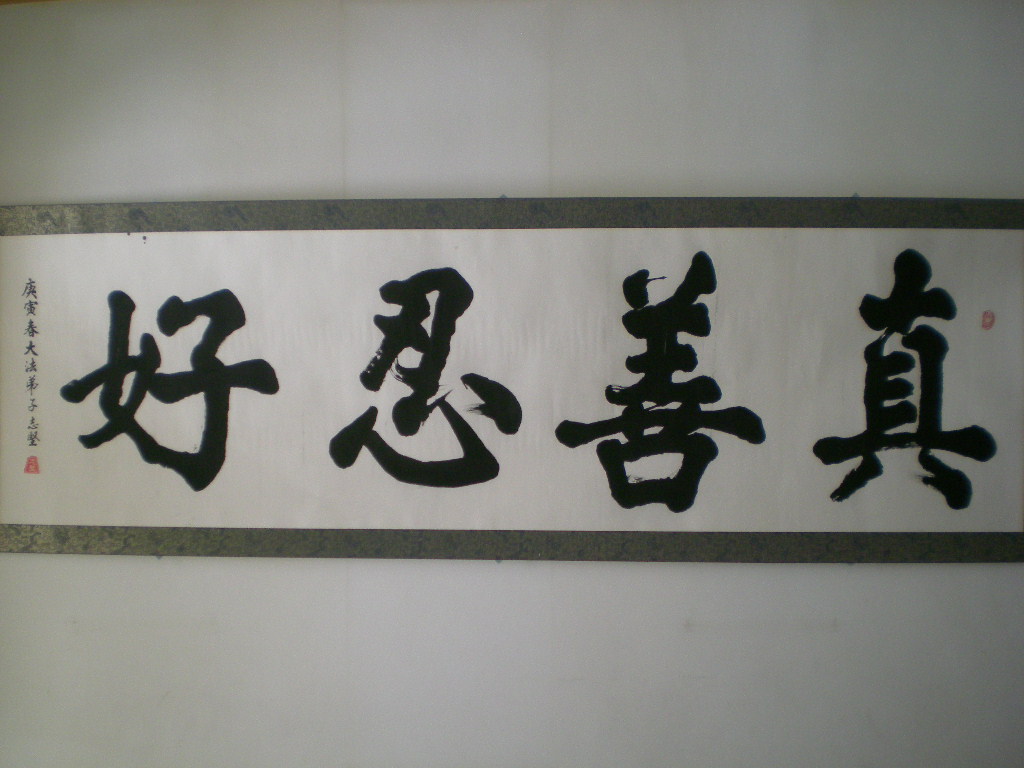 真善忍好
庚寅春大法弟子志堅